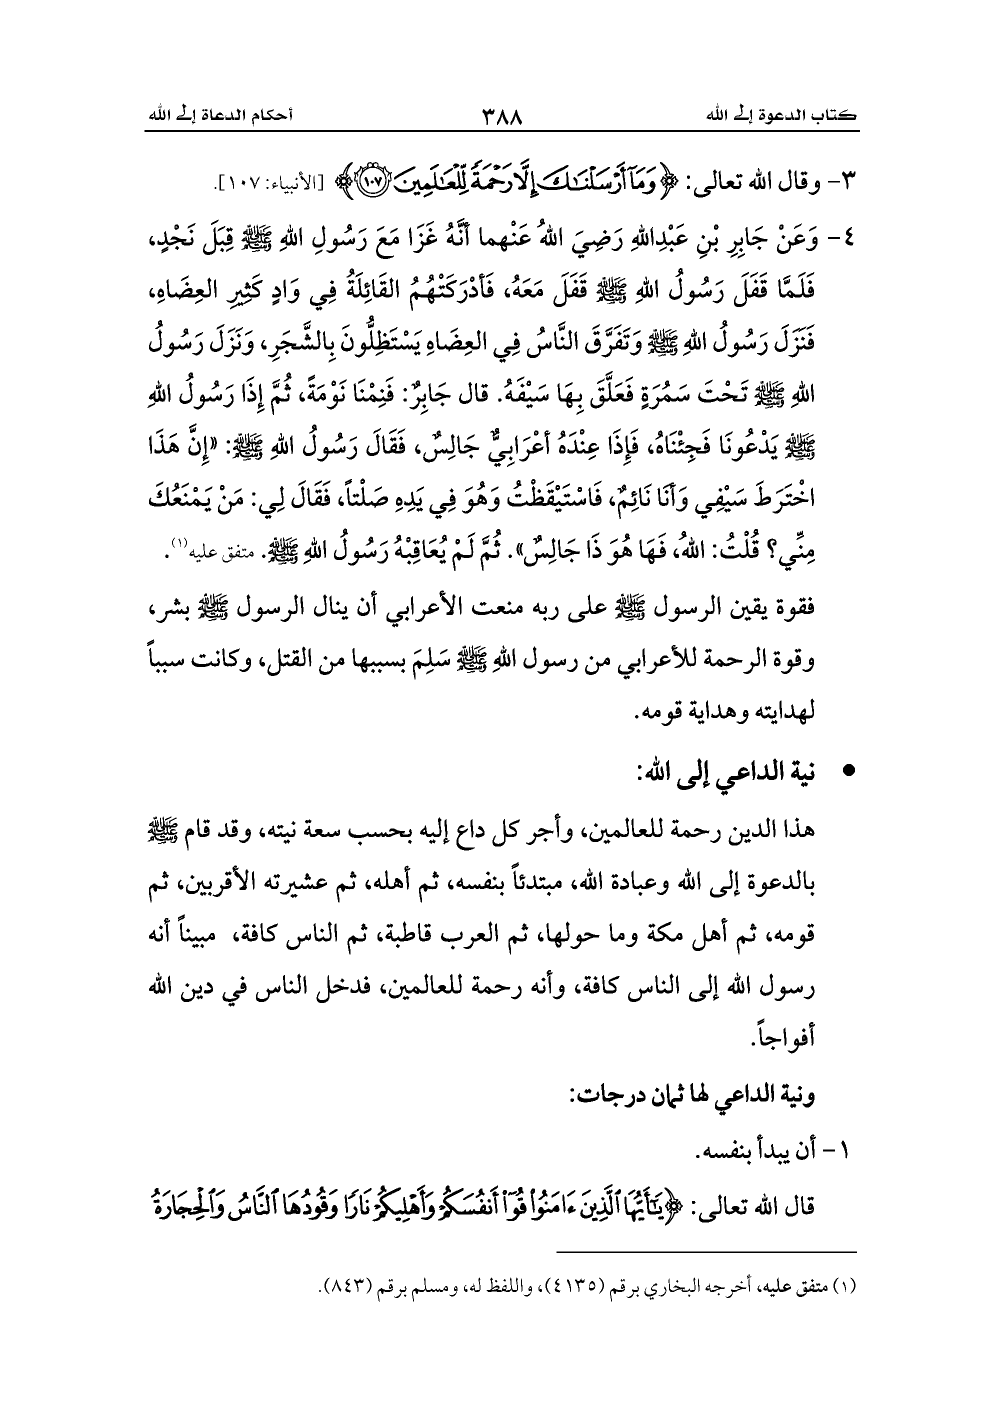 كتاب الدعوة إلى الله ٣٨٨ أحكام الدعاة إلى الله
٣- وقال الله تعالى: ﴿وَمَآ أَرْسَلْنَٰكَ إِلَّا رَحْمَةً لِّلْعَٰلَمِينَ ١٠٧﴾ [الأنبياء: ١٠٧].
٤- وَعَنْ جَابِرِ بْنِ عَبْدِاللهِ رَضِيَ اللهُ عَنْهما أنَّهُ غَزَا مَعَ رَسُولِ اللهِ ﷺ قِبَلَ نَجْدٍ،
فَلَمَّا قَفَلَ رَسُولُ اللهِ ﷺ قَفَلَ مَعَهُ، فَأدْرَكَتْهُمُ القَائِلَةُ فِي وَادٍ كَثِيرِ العِضَاهِ،
فَنَزَلَ رَسُولُ اللهِ ﷺ وَتَفَرَّقَ النَّاسُ فِي العِضَاهِ يَسْتَظِلُّونَ بِالشَّجَرِ، وَنَزَلَ رَسُولُ
اللهِ ﷺ تَحْتَ سَمُرَةٍ فَعَلَّقَ بِهَا سَيْفَهُ. قال جَابِرٌ: فَنِمْنَا نَوْمَةً، ثُمَّ إِذَا رَسُولُ اللهِ
ﷺ يَدْعُونَا فَجِئْنَاهُ، فَإِذَا عِنْدَهُ أعْرَابِيٌّ جَالِسٌ، فَقَالَ رَسُولُ اللهِ ﷺ: «إِنَّ هَذَا
اخْتَرَطَ سَيْفِي وَأنَا نَائِمٌ، فَاسْتَيْقَظْتُ وَهُوَ فِي يَدِهِ صَلْتاً، فَقَالَ لِي: مَنْ يَمْنَعُكَ
مِنِّي؟ قُلْتُ: اللهُ، فَهَا هُوَ ذَا جَالِسٌ». ثُمَّ لَمْ يُعَاقِبْهُ رَسُولُ اللهِ ﷺ. متفق عليه(١).
فقوة يقين الرسول ﷺ على ربه منعت الأعرابي أن ينال الرسول ﷺ بشر،
وقوة الرحمة للأعرابي من رسول اللهِ ﷺ سَلِمَ بسببها من القتل، وكانت سبباً
لهدايته وهداية قومه.
● نية الداعي إلى الله:
هذا الدين رحمة للعالمين، وأجر كل داع إليه بحسب سعة نيته، وقد قام ﷺ
بالدعوة إلى الله وعبادة الله، مبتدئاً بنفسه، ثم أهله، ثم عشيرته الأقربين، ثم
قومه، ثم أهل مكة وما حولها، ثم العرب قاطبة، ثم الناس كافة، مبيناً أنه
رسول الله إلى الناس كافة، وأنه رحمة للعالمين، فدخل الناس في دين الله
أفواجاً.
ونية الداعي لها ثمان درجات:
١- أن يبدأ بنفسه.
قال الله تعالى: ﴿يَٰٓأَيُّهَا ٱلَّذِينَ ءَامَنُوا۟ قُوٓا۟ أَنفُسَكُمْ وَأَهْلِيكُمْ نَارًا وَقُودُهَا ٱلنَّاسُ وَٱلْحِجَارَةُ
(١) متفق عليه، أخرجه البخاري برقم (٤١٣٥)، واللفظ له، ومسلم برقم (٨٤٣).